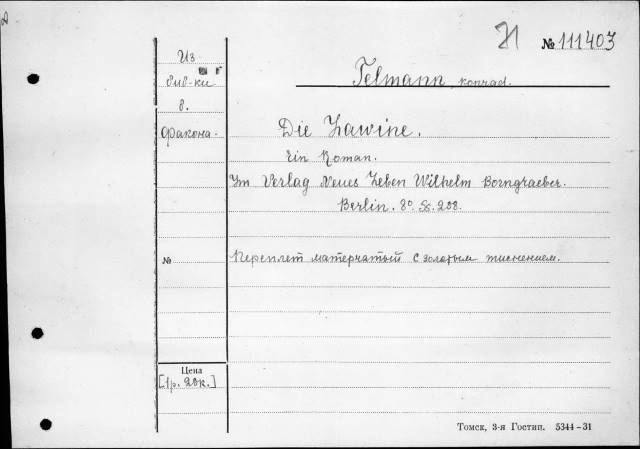 Л № 111403
Из
биб-ки
в.
Фракона.
Telmann, Konrad.
Die Lawine.
Ein Roman.
Im Verlag Neues Leben Wilhelm Borngraeber.
Berlin. 8° S. 208.
№ Переплет матерчатый с золотым тиснением.
Цена
[1р. 20к.]
Томск, 3-я Гостип. 5344-31